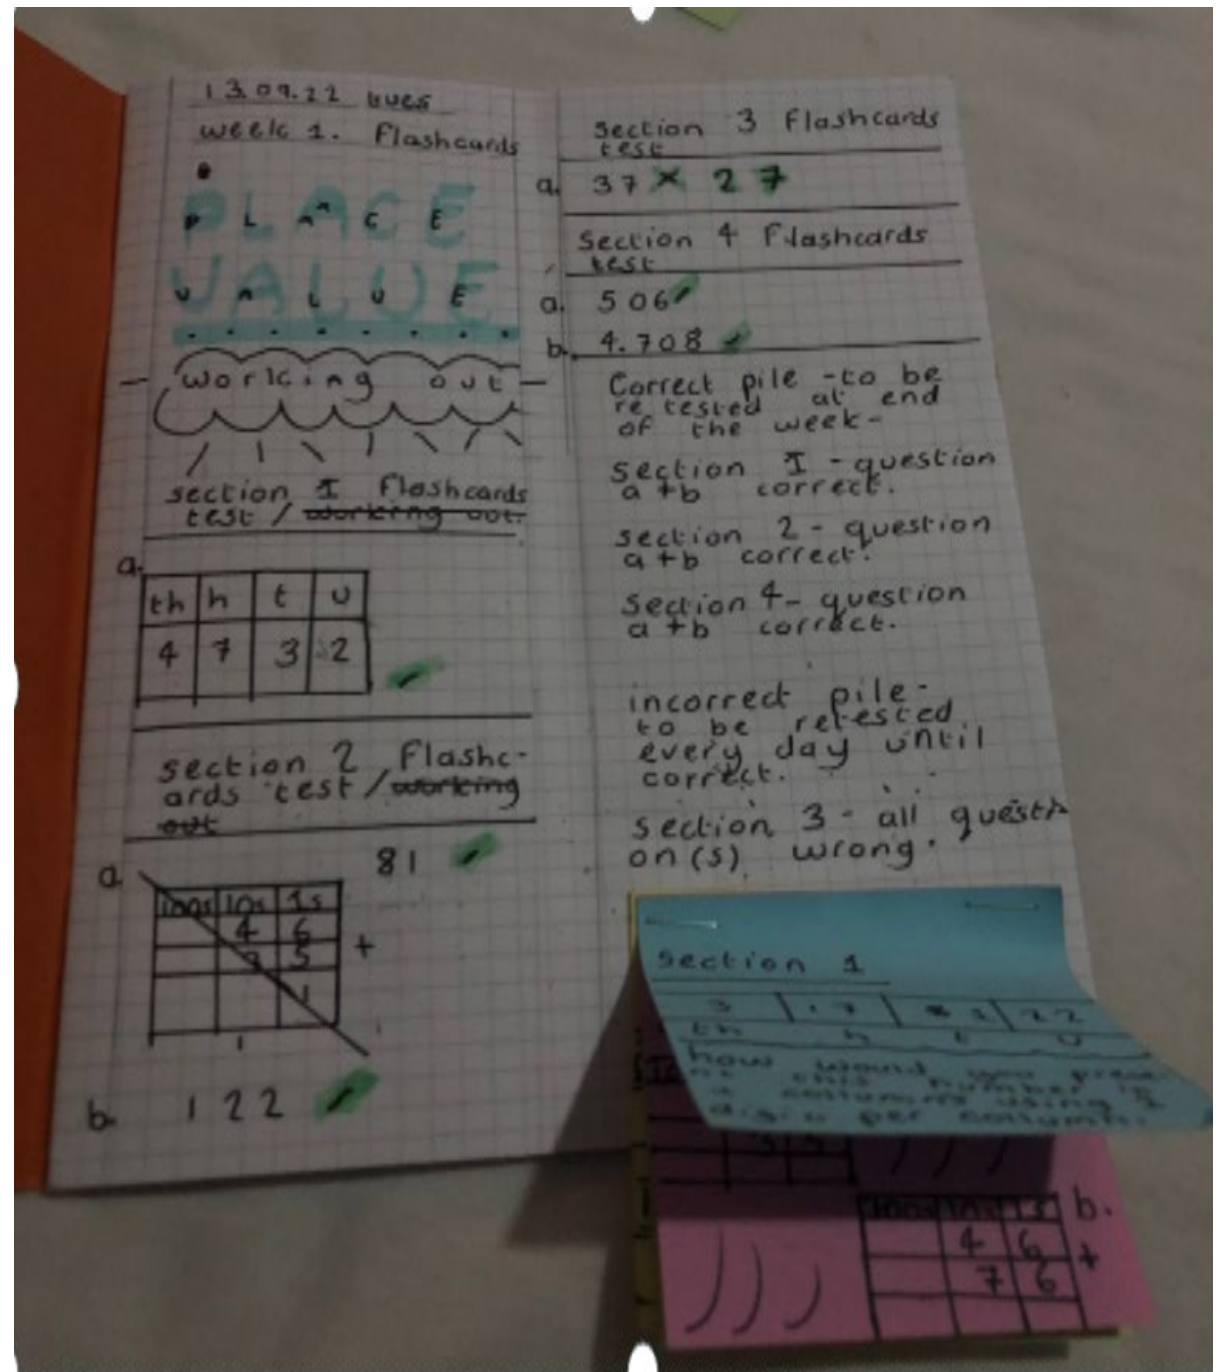 13.09.22 tues
week 1. Flashcards
PLACE
VALUE
working out
section 1 Flashcards
test / working out.
a.
th h t U
4 7 3 2
section 2 Flashc-
ards test / working
out
81
a.
100s 10s 1s
4 6
3 5 +
1
1
b. 122
section 3 Flashcards
test
a. 37 x 27
Section 4 Flashcards
test
a. 506
b. 4.708
Correct pile - to be
re tested at end
of the week -
section 1 - question
a + b correct.
section 2 - question
a + b correct.
section 4 - question
a + b correct.
incorrect pile -
to be retested
every day until
correct.
section 3 - all questi-
on(s) wrong.
section 1
th h t U
how would you
this number in
columns using 1
per column.
3 5
100s 10s 1s b.
4 6 +
7 6